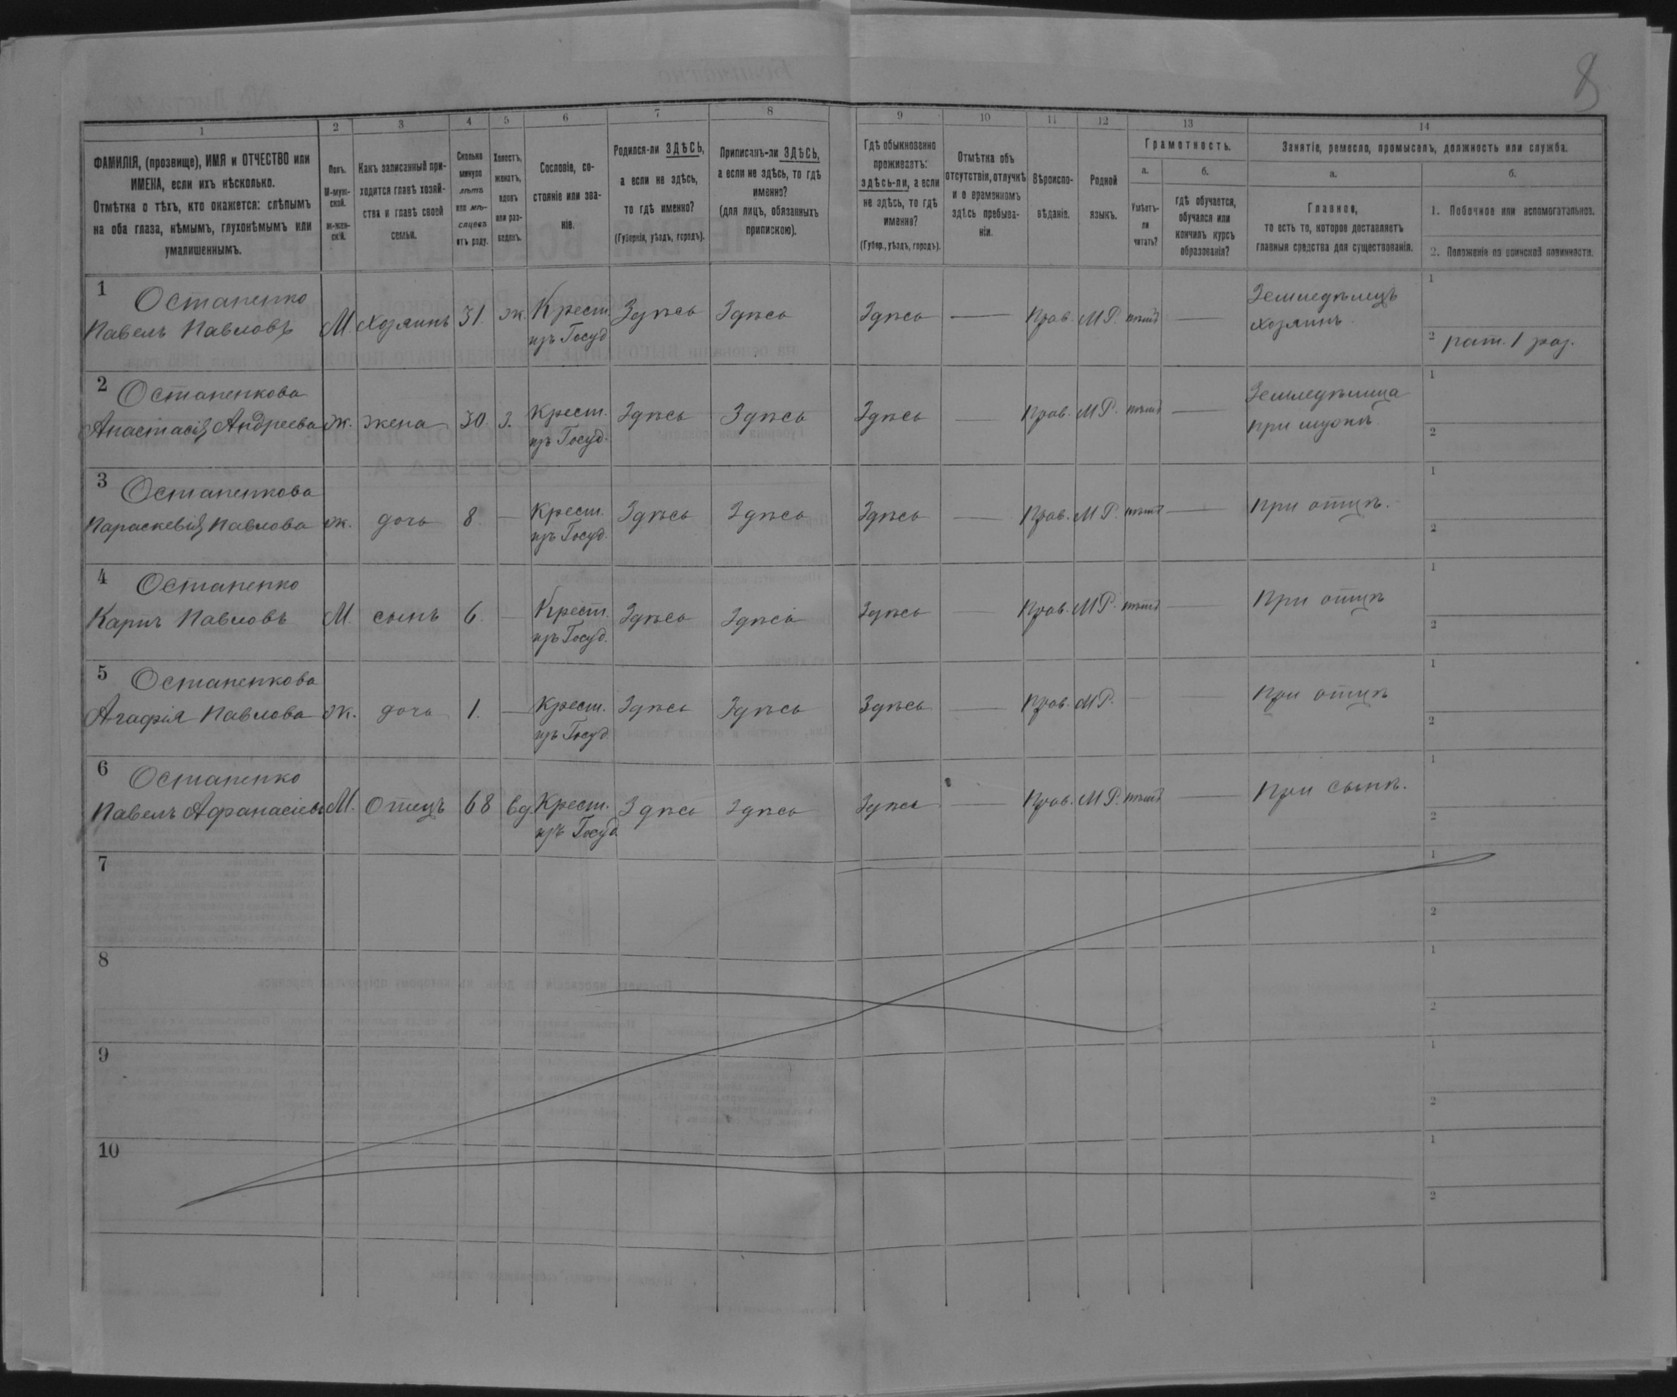 8
1 2 3 4 5 6 7 8 9 10 11 12 13 14
ФАМИЛІЯ, (прозвище), ИМЯ и ОТЧЕСТВО или
ИМЕНА, если ихъ нѣсколько.
Отмѣтка о тѣхъ, кто окажется: слѣпымъ
на оба глаза, нѣмымъ, глухонѣмымъ или
умалишеннымъ.
Полъ.
М-муж-
ской.
Ж-жен-
скій.
Какъ записанный при-
ходится главѣ хозяй-
ства и главѣ своей
семьи.
Сколько
минуло
лѣтъ
или мѣ-
сяцевъ
отъ роду.
Холостъ,
женатъ,
вдовъ
или раз-
веденъ.
Сословіе, со-
стояніе или зва-
ніе.
Родился-ли ЗДѢСЬ,
а если не здѣсь,
то гдѣ именно?
(Губернія, уѣздъ, городъ).
Приписанъ-ли ЗДѢСЬ,
а если не здѣсь, то гдѣ
именно?
(для лицъ, обязанныхъ
припискою).
Гдѣ обыкновенно
проживаетъ:
здѣсь-ли, а если
не здѣсь, то гдѣ
именно?
(Губер., уѣздъ, городъ).
Отмѣтка объ
отсутствіи, отлучкѣ
и о временномъ
здѣсь пребыва-
ніи.
Вѣроиспо-
вѣданіе.
Родной
языкъ.
Грамотность.
а.
Умѣетъ-
ли
читать?
б.
гдѣ обучается,
обучался или
кончилъ курсъ
образованія?
Занятіе, ремесло, промыселъ, должность или служба.
а.
Главное,
то есть то, которое доставляетъ
главныя средства для существованія.
б.
1. Побочное или вспомогательное.
2. Положеніе по воинской повинности.
1 Остапенко
Павелъ Павловъ М. Хозяинъ 31. ж. Крест. Здѣсь Здѣсь Здѣсь — Прав. МР. — Земледѣлецъ 1
изъ Госуд. хозяинъ. 2 рат. 1 раз.
2 Остапенкова
Анастасія Андреева ж. жена 30 з. Крест. Здѣсь Здѣсь Здѣсь — Прав. МР. — Земледѣлица 1
изъ Госуд. при мужѣ 2
3 Остапенкова
Параскевія Павлова ж. дочь 8. — Крест. Здѣсь Здѣсь Здѣсь — Прав. МР. — При отцѣ. 1
изъ Госуд. 2
4 Остапенко
Павловъ М. сынъ 6. — Крест. Здѣсь Здѣсь Здѣсь — Прав. МР. — При отцѣ 1
изъ Госуд. 2
5 Остапенкова
Агафія Павлова ж. дочь 1. — Крест. Здѣсь Здѣсь Здѣсь — Прав. МР. — — При отцѣ 1
изъ Госуд. 2
6 Остапенко
Павелъ М. Отецъ 68 вд. Крест. Здѣсь Здѣсь Здѣсь Прав. МР. — При сынѣ. 1
изъ Госуд. 2
7 1
2
8 1
2
9 1
2
10 1
2